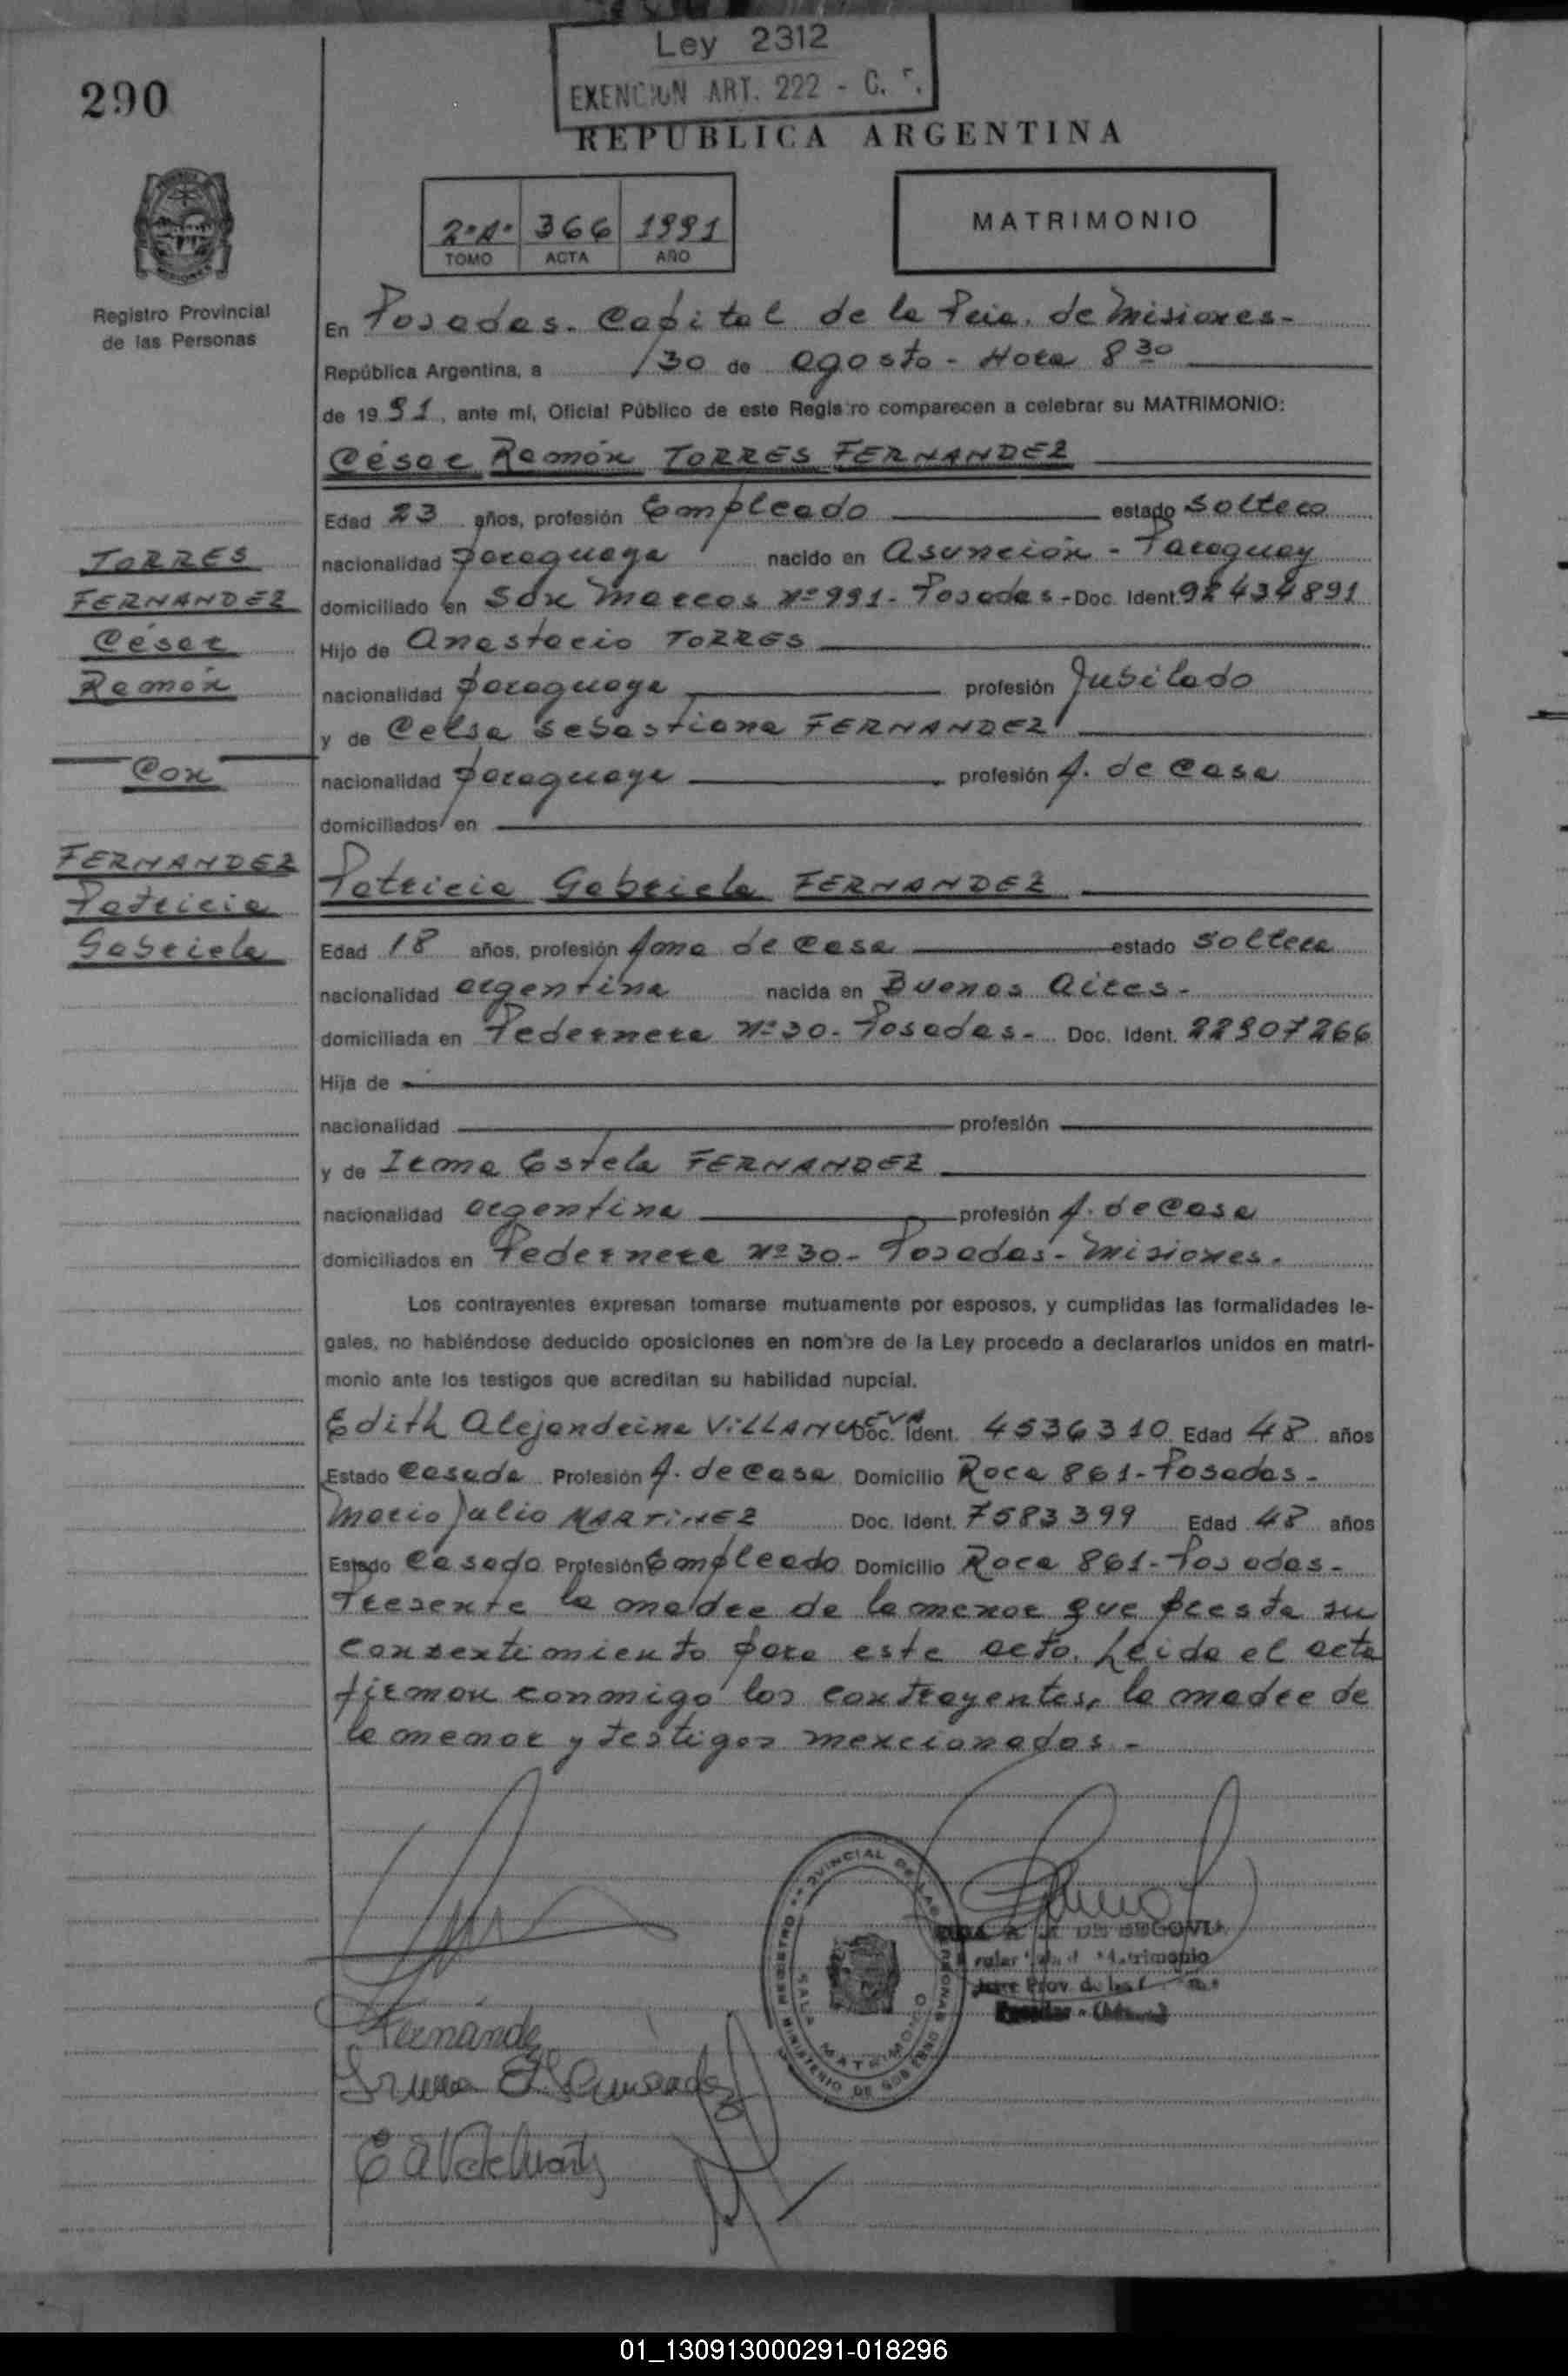 Ley 2312
EXENCION ART. 222 - C.
290
REPUBLICA ARGENTINA
2º Aº 366 1991
TOMO ACTA AÑO
MATRIMONIO
Registro Provincial
de las Personas
En Posadas. Capital de la Pcia. de Misiones-
República Argentina, a 30 de agosto - Hora 8 30
de 19 91, ante mí, Oficial Público de este Registro comparecen a celebrar su MATRIMONIO:
César Ramón TORRES FERNANDEZ
Edad 23 años, profesión Empleado estado soltero
nacionalidad paraguaya nacido en Asunción - Paraguay
domiciliado en San Marcos Nº 991- Posadas - Doc. Ident. 92434891
Hijo de Anastacio TORRES
nacionalidad paraguaya profesión Jubilado
y de Celsa Sebastiana FERNANDEZ
nacionalidad paraguaya profesión A. de Casa
domiciliados en
TORRES
FERNANDEZ
César
Ramón
Con
FERNANDEZ
Patricia
Gabriela
Patricia Gabriela FERNANDEZ
Edad 18 años, profesión Ama de Casa estado soltera
nacionalidad argentina nacida en Buenos Aires-
domiciliada en Pedernera Nº 30- Posadas- Doc. Ident. 22907266
Hija de
nacionalidad profesión
y de Irma Estela FERNANDEZ
nacionalidad argentina profesión A. de Casa
domiciliados en Pedernera Nº 30- Posadas- Misiones.
Los contrayentes expresan tomarse mutuamente por esposos, y cumplidas las formalidades le-
gales, no habiéndose deducido oposiciones en nombre de la Ley procedo a declararlos unidos en matri-
monio ante los testigos que acreditan su habilidad nupcial.
Edith Alejandrina VILLANUEVA Doc. Ident. 4536310 Edad 48 años
Estado Casada Profesión A. de Casa Domicilio Roca 861- Posadas-
Mario Julio MARTINEZ Doc. Ident. 7583399 Edad 48 años
Estado Casado Profesión Empleado Domicilio Roca 861- Posadas-
Presente la madre de la menor que presta su
consentimiento para este acto. Leida el acta
firman conmigo los contrayentes, la madre de
la menor y testigos mencionados-
REGISTRO PROVINCIAL DE LAS PERSONAS
SALA MATRIMONIO
MINISTERIO DE GOBIERNO
DE SEGOVIA
Matrimonio
Prov. de las
Fernández
Irma E. Fernandez
01_130913000291-018296